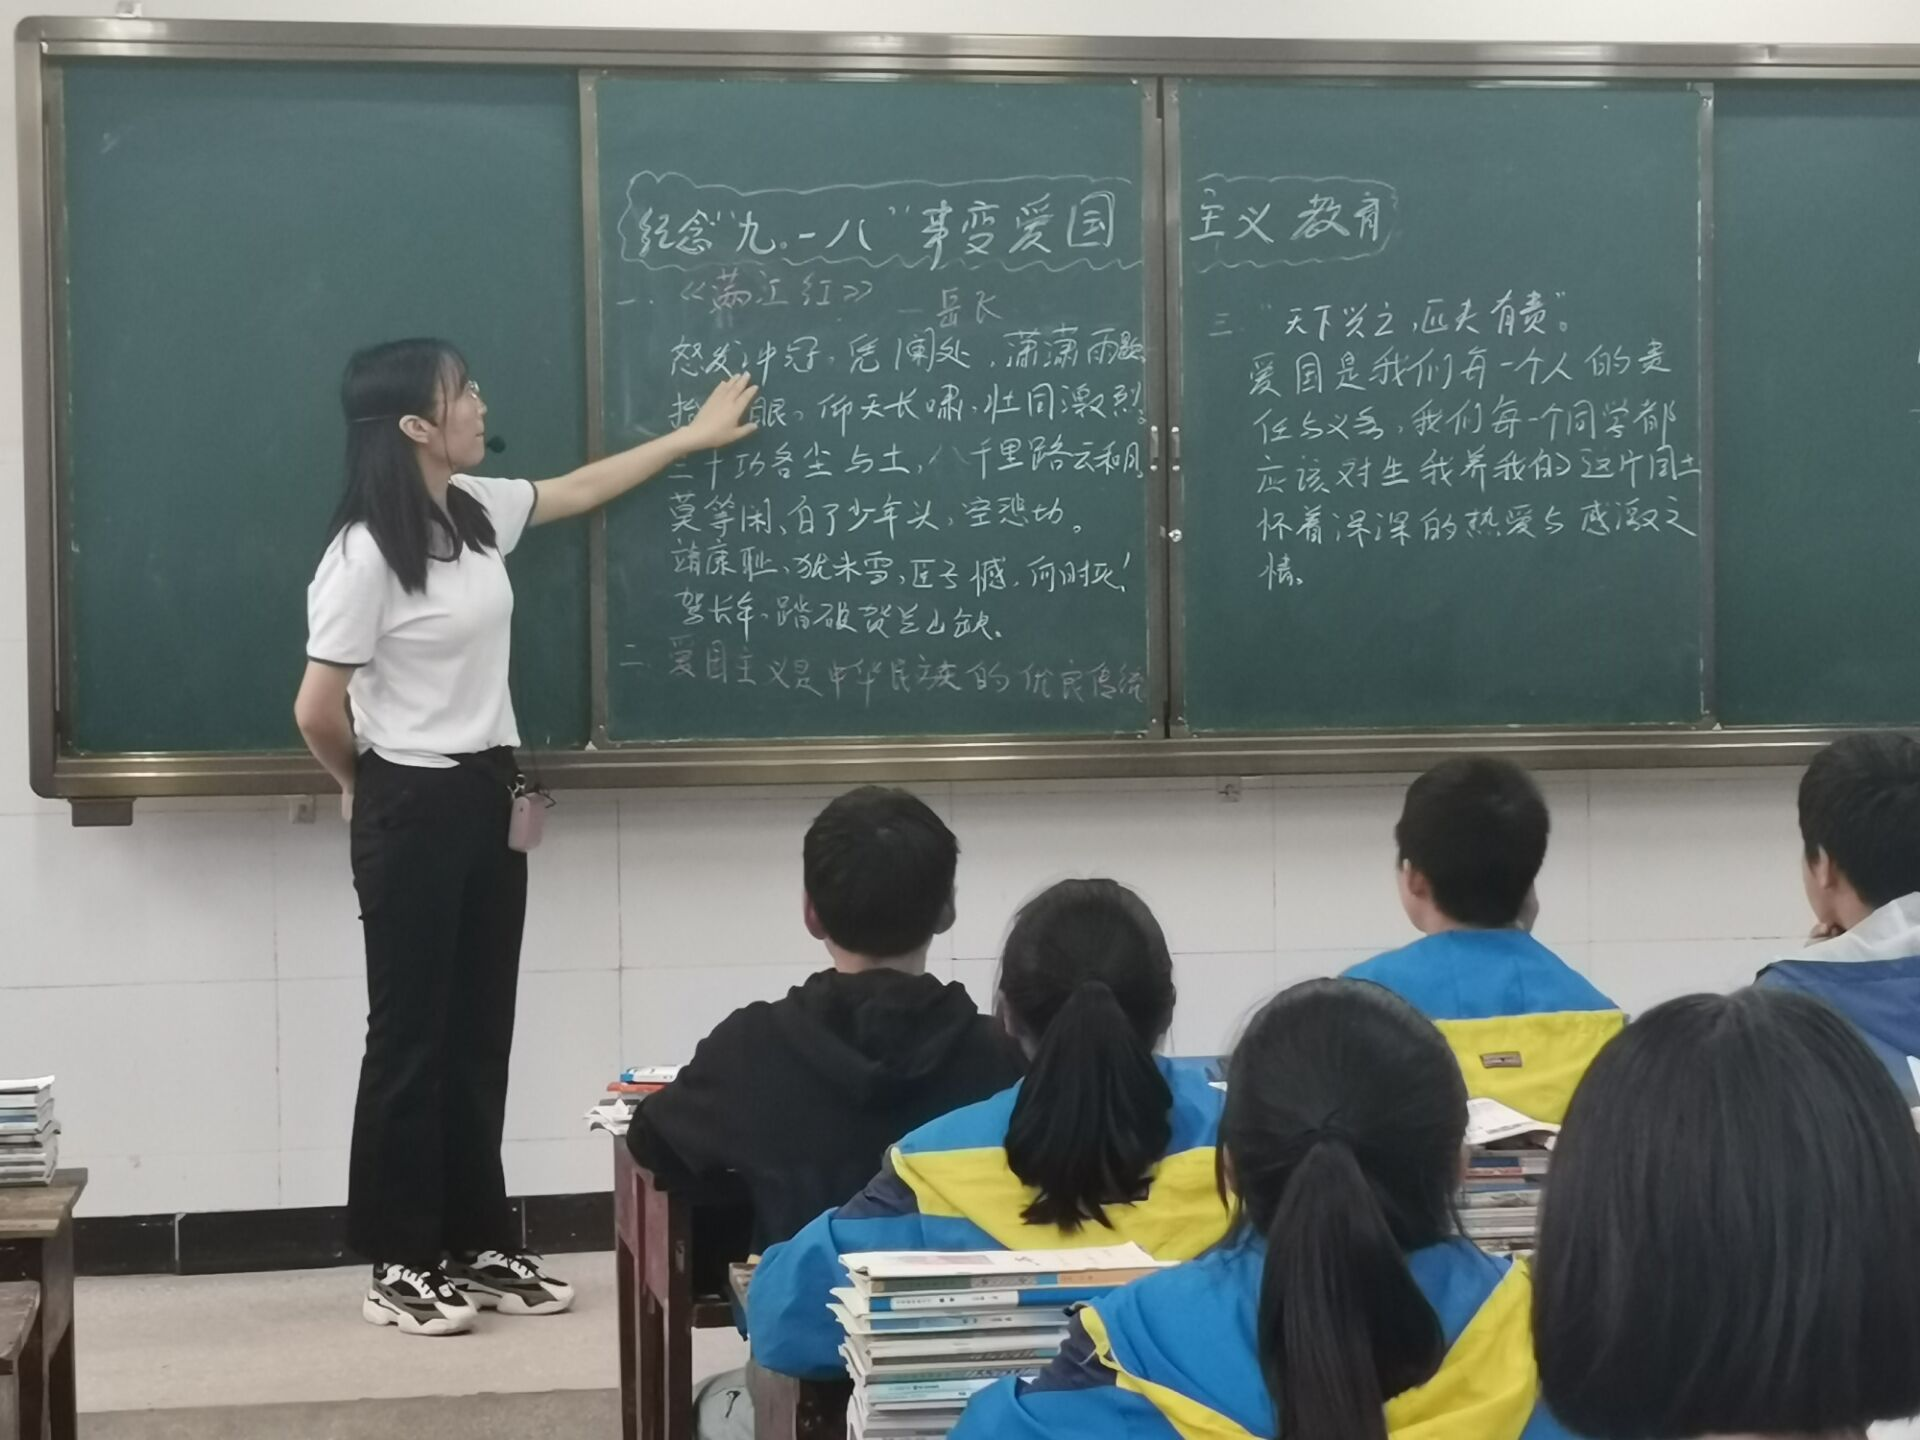 纪念“九.一八”事变爱国主义教育
一.《满江红》
—岳飞
怒发冲冠,凭阑处,潇潇雨歇
抬 眼。仰天长啸,壮怀激烈。
三十功名尘与土,八千里路云和月
莫等闲、白了少年头,空悲切。
靖康耻、犹未雪,臣子憾,何时灭!
驾长车,踏破贺兰山缺。
二.爱国主义是中华民族的优良传统
三 “天下兴亡,匹夫有责”。
爱国是我们每一个人的责
任与义务,我们每一个同学都
应该对生我养我的这片国土
怀着深深的热爱与感激之
情。